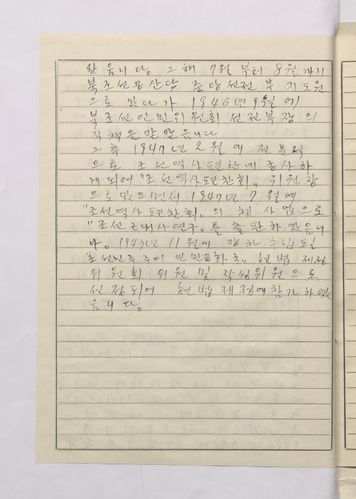 왔읍니다. 그해 7월 부터 8월 까지
북조선공산당 중앙선전부 지도원
으로 있다가 1946년 9월에
북조선인민위원회 선전부장의
직책을 맡았읍니다
그후 1947년 2월에 전문적
으로 조선역사편찬에 종사하
게되어 "조선역사편찬회" 위원장
으로 있으면서 1947년 7월에
"조선역사편찬회"의 첫 사업으로
"조선근대사연구"를 출판하였읍니
다. 1947년 11월에 장차 수립될
조선민주주의 인민공화국 헌법 제정
위원회 위원 및 작성위원으로
선정되어 헌법제정에 참가하였
읍니다.